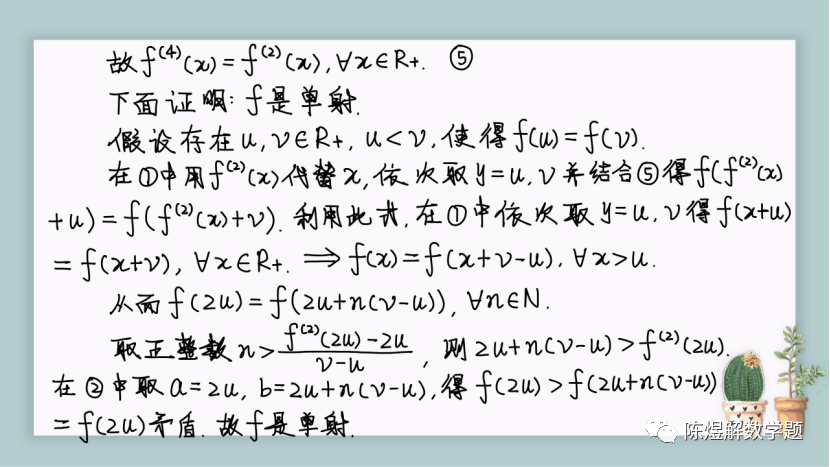 故f⁽⁴⁾(x)=f⁽²⁾(x),∀x∈R+. ⑤
下面证明:f是单射.
假设存在u,v∈R+,u<v,使得f(u)=f(v).
在①中用f⁽²⁾(x)代替x,依次取y=u,v并结合⑤得f(f⁽²⁾(x)
+u)=f(f⁽²⁾(x)+v).利用此式,在①中依次取y=u,v得f(x+u)
=f(x+v),∀x∈R+.⟹f(x)=f(x+v-u),∀x>u.
从而f(2u)=f(2u+n(v-u)),∀n∈N.
取正整数n>\frac{f⁽²⁾(2u)-2u}{v-u},则2u+n(v-u)>f⁽²⁾(2u).
在②中取a=2u,b=2u+n(v-u),得f(2u)>f(2u+n(v-u))
=f(2u)矛盾.故f是单射.
陈煜解数学题